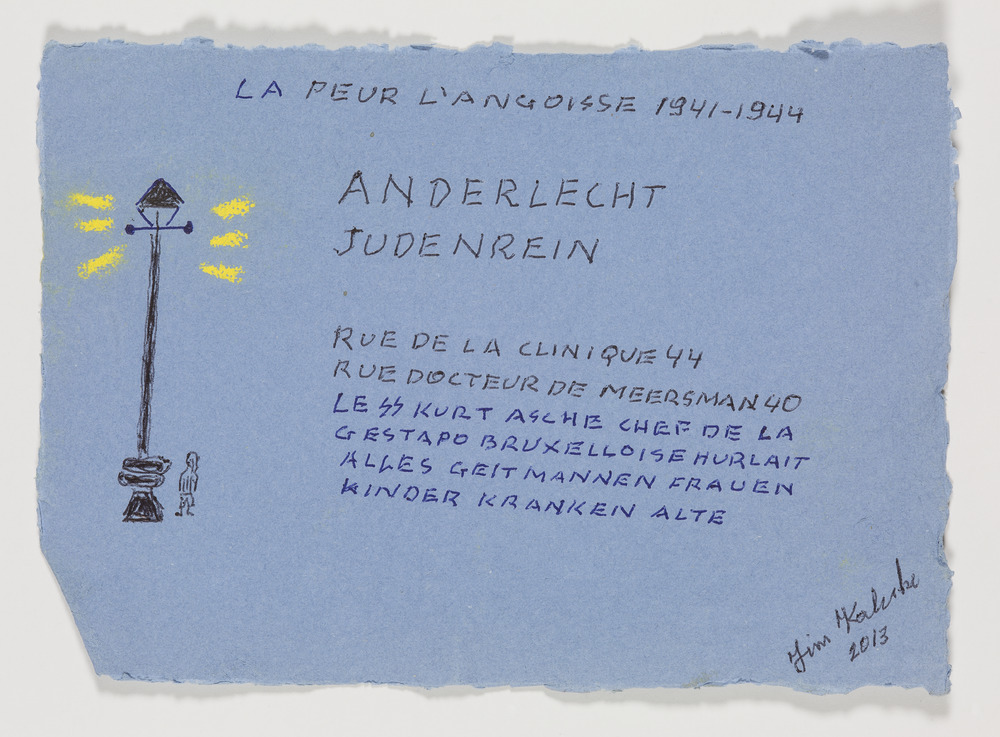 LA PEUR L'ANGOISSE 1941-1944
ANDERLECHT
JUDENREIN
RUE DE LA CLINIQUE 44
RUE DOCTEUR DE MEERSMAN 40
LE SS KURT ASCHE CHEF DE LA
GESTAPO BRUXELLOISE HURLAIT
ALLES GEIT MANNEN FRAUEN
KINDER KRANKEN ALTE
2013